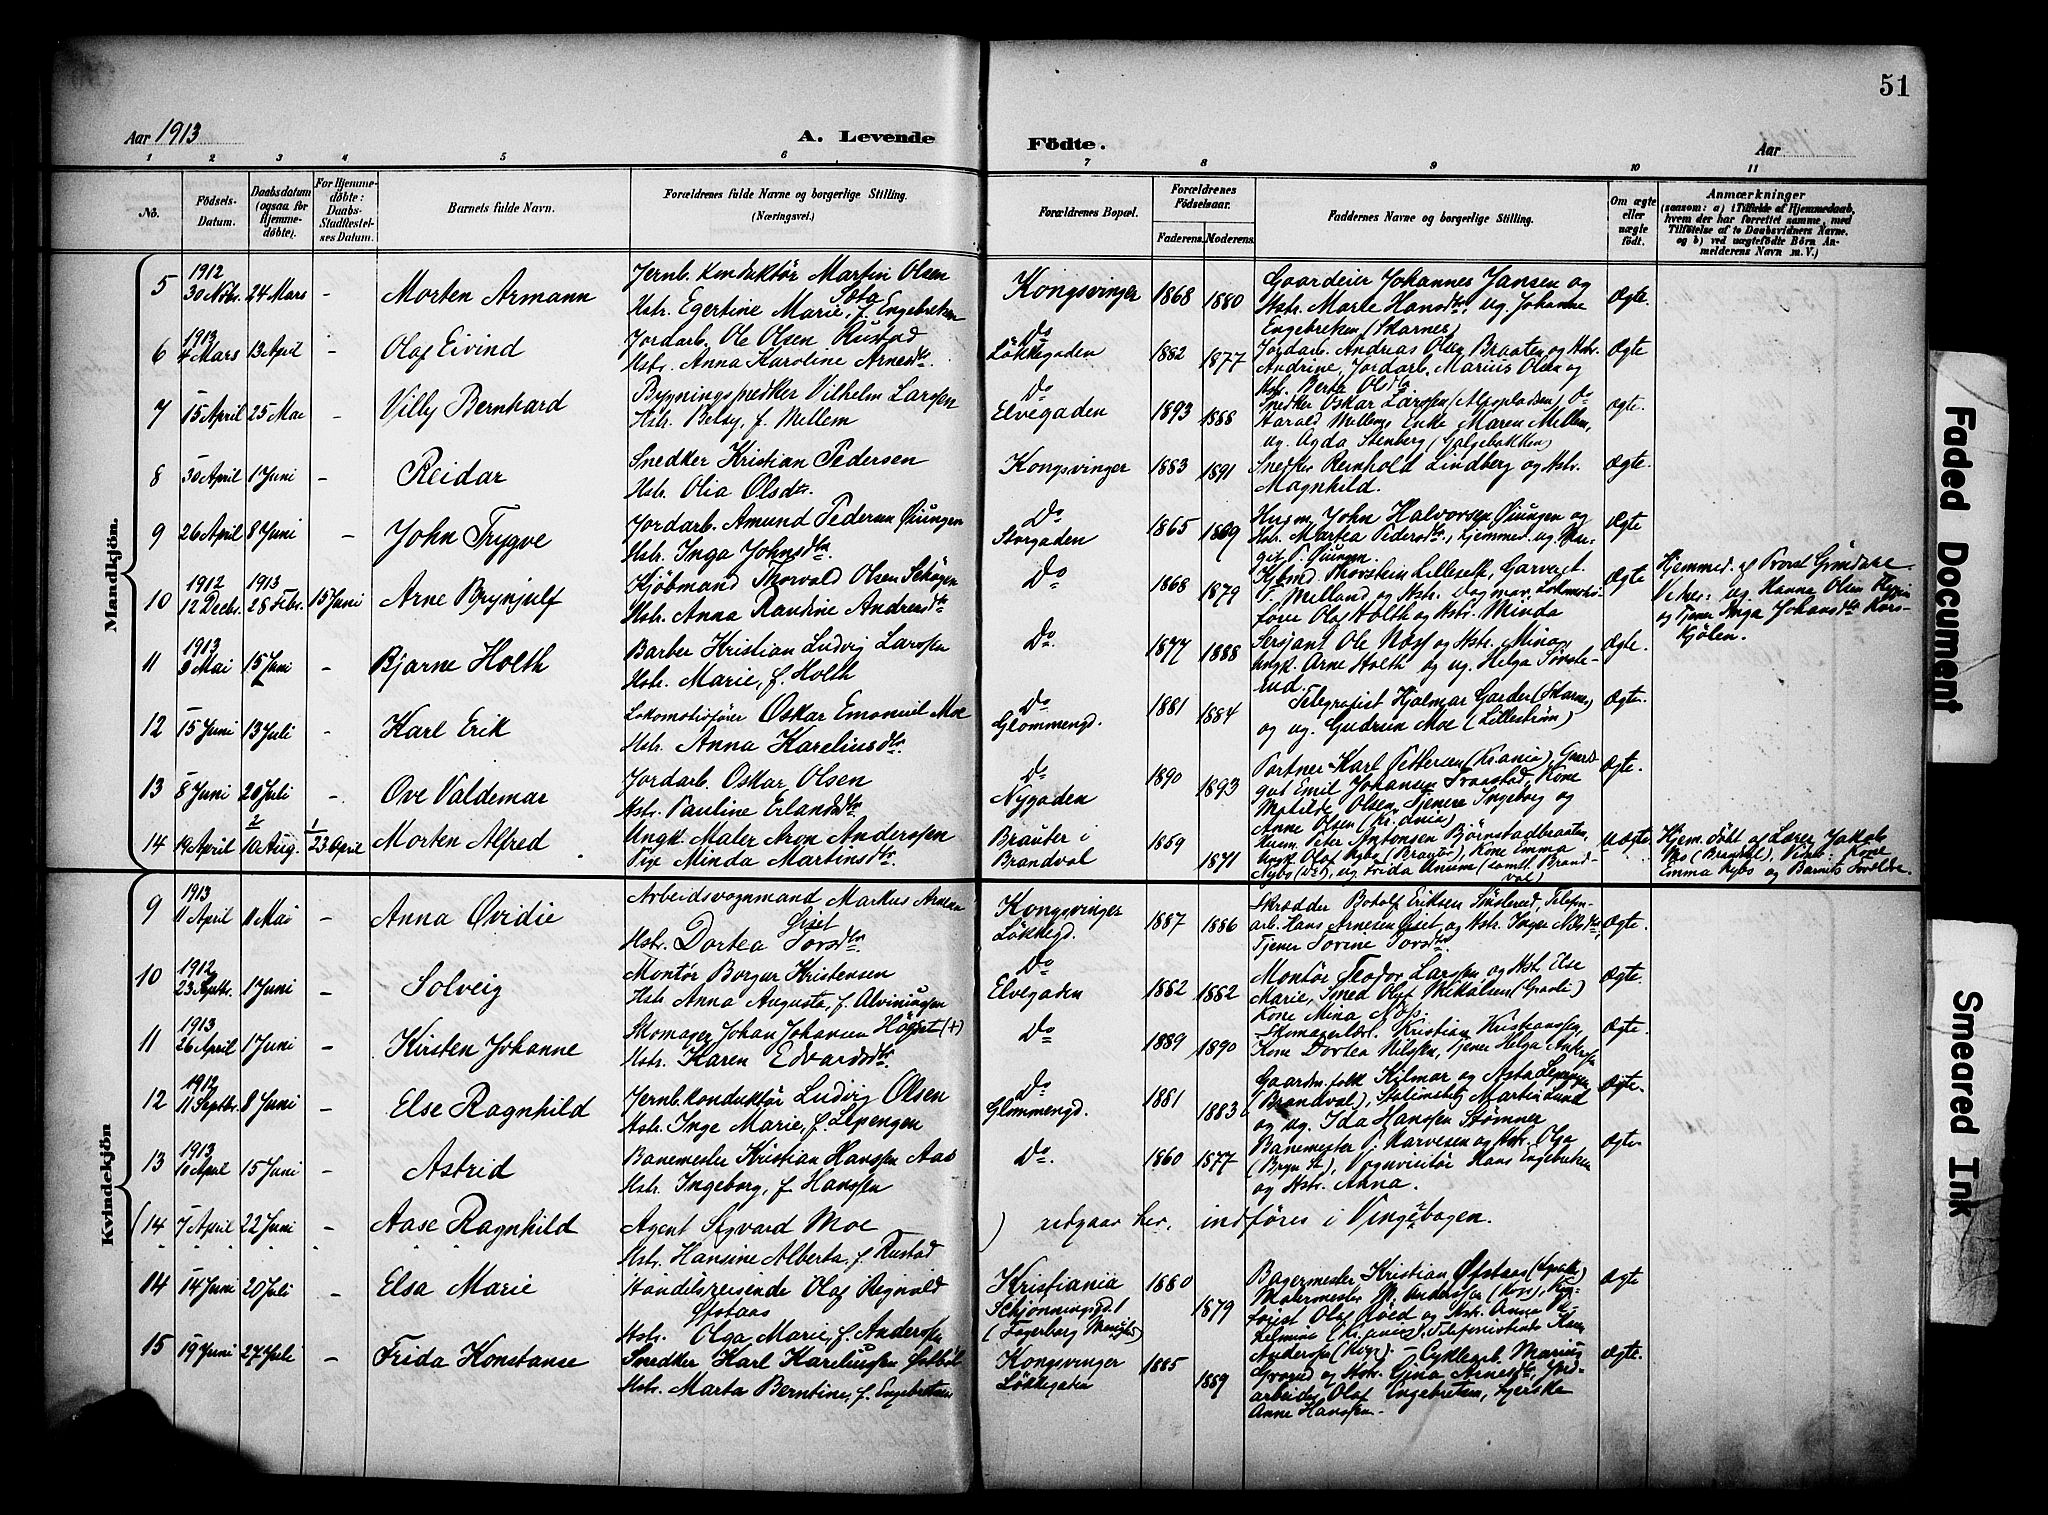 51
Aar 1913
A. Levende Födte.
Aar
1 2 3 4 5 6 7 8 9 10 11
No.
Födsels-Datum.
Daabsdatum (ogsaa for Hjemme-döbte).
For Hjemme-döbte: Daabs-Stadfæstel-ses Datum.
Barnets fulde Navn.
Forældrenes fulde Navne og borgerlige Stilling. (Næringsvei.)
Forældrenes Bopæl.
Forældrenes Födselsaar.
Faderens. Moderens.
Faddernes Navne og borgerlige Stilling.
Om ægte eller uægte födt.
Anmærkninger
(saasom: a) i Tilfælde af Hjemmedaab,
hvem der har forrettet samme, med
Tilföielse af to Daabsvidners Navne.
og b) ved uægtefödte Börn An-
melderens Navn m. V.)
Mandkjön.
5 1912 30 Novbr. 24 Mars - Morten Armann
Jernb. konduktør Martin Olsen Sæta
Hstr. Egertine Marie, f. Engebretsen
Kongsvinger 1868 1880
Gaardeier Johannes Jansen og
Hstr. Marte Hansdtr, ug. Johanne
Engebretsen (Skarnes)
Ægte.
6 1913 4 Mars 13 April - Olaf Eivind
Jordarb. Ole Olsen Rustad
Hstr. Anna Karoline Arnesdtr.
Do Løkkegaden 1882 1877
Jordarb. Andreas Olsen Braaten og Hstr.
Andrine, Jordarb. Marius Olsen og
Hstr. Berta Olsdtr
Ægte.
7 15 April 25 Mai - Villy Bernhard
Bygningssnedker Vilhelm Larssen
Hstr. Betsy, f. Mellem
Do Elvegaden 1893 1888
Snedker Oskar Larssen
Harald Mellems Enke Maren Mellem,
ug. Agda Stenberg (Galgebakken)
Ægte.
8 30 April 1 Juni - Reidar
Snedker Kristian Pedersen
Hstr. Olia Olsdtr.
Kongsvinger 1883 1891
Snedker Reinhold Lindberg og Hstr.
Magnhild.
Ægte.
9 26 April 8 Juni - John Trygve
Jordarb. Amund Pedersen Øiungen
Hstr. Inga Johnsdtr
Do Storgaden 1865 1869
Husm. John Halvorsen Øiungen og
Hstr. Martea Pedersdtr., hjemmev. ug. Mar-
git P. Øiungen.
Ægte
10 1912 12 Decbr. 1913 28 Febr. 15 Juni Arne Brynjulf
Kjøbmand Thorvald Olsen
Hstr. Anna Randine Andreasdtr
Do 1868 1879
Kjbmd. Thorstein Lilleseth, Garver
P. Melland og Hstr. Dagmar, Lokomotiv-
fører Olaf Holth og Hstr. Minda
Ægte
Hjemmed. af Provst Grimdalen
Vidner: ug. Hanna Olsen
og Tjener Inga Johansdtr Kors-
kjølen.
11 1913 9 Mai 15 Juni - Bjarne Holth
Barber Kristian Ludvig Larssen
Hstr. Marie, f. Holth
Do. 1877 1888
Sersjant Ole Næss og Hstr. Mina,
Ungk. Arne Holth og ug. Helga Tørste-
rud.
Ægte.
12 15 Juni 13 Juli - Karl Erik
Lokomotivfører Oskar Emanuel Moe
Hstr. Anna Kareliusdtr.
Do Glommengd. 1881 1884
Telegrafist Hjalmar Garder (Skarnes)
og ug. Gudrun Moe (Lillestrøm)
Ægte.
13 8 Juni 20 Juli - Ove Valdemar
Jordarb. Oskar Olsen
Hstr. Pauline Erlandsdtr
Do Nygaden 1890 1893
Portner Karl Pettersen (Krania), Gaard-
gut Emil Johansen, Kone
Matilde Olsen, Tjenere Ingeborg og
Anne Olsen (Kr.ania)
Ægte.
14 14 April 10 Aug. 23 April Morten Alfred
Ungk. Maler Aron Anderssen
Pige Minda Martinsdtr.
Brauter i Brandval 1859 1871
Husm. Peter Antonsen Bjørnstadbraaten,
Ungk. Olaf Nybo, Kone Emma
Nybo (Do), ug. Frida (samtl. Brand-
val)
Uægte
Hjem. døbt af Lærer Jakob
(Brandval), Vidn: Kone
Emma Nybo og Barnets Forældre.
Kvindekjön
9 1913 11 April 11 Mai - Anna Ovidie
Arbeidsvognmand Markus Arnesen Giset
Hstr. Dortea Torsdtr
Kongsvinger Løkkegd. 1887 1886
Skrædder Botolf Eriksen, Telefon-
arb. Hans Arnesen Giset og Hstr. Inger Nilsdtr,
Tjener Torine Torsdtr
Ægte.
10 1912 23 Septbr. 1 Juni - Solveig
Montør Borger Kristensen
Hstr. Anna Augusta, f. Alviningen
Do Elvegaden 1882 1882
Montør Teodor Larssen og Hstr. Else
Marie, Smed Oluf Mikkelsen
Kone Mina Næss.
Ægte.
11 1913 26 April 1 Juni - Kirsten Johanne
Skomager Johan Johansen (+)
Hstr. Karen Edvardsdtr.
Do 1889 1890
Skomagerlærl. Kristian Kristianssen,
Kone Dortea Nilssen, Tjener Helga
Ægte.
12 1912 11 Septbr. 8 Juni - Else Ragnhild
Jernb. konduktør Ludvig Olsen
Hstr. Inge Marie, f. Lepengen
Do Glommengd. 1881 1883
Gaardm.folk Hilmar og Asta Lepengen
(Brandval), Martin Lund
og ug. Ida Hanssen Strømner
Ægte.
13 1913 11 April 15 Juni - Astrid
Banemester Kristian Hanssen Aas
Hstr. Ingeborg, f. Hanssen
Do. 1860 1877
Banemester P. Narvesen og Hstr. Olga
(Bryn St), Vognvisitør Hans Engebretsen
og Hstr. Anna.
Ægte
(14 7 April 22 Juni - Aase Ragnhild
Agent Sigvard Moe
Hstr. Hansine Alberta, f. Rustad
) udgaar her, indføres i Vingerbogen.
14 14 Juni 20 Juli - Elsa Marie
Handelsreisende Olaf Reginald Ofstaas
Hstr. Olga Marie, f. Anderssen
Kristiania Schjønningsgd. 1 (Fagerborg Menighed) 1880 1879
Bagermester Kristian Ofstaas
Malermester M. Anderssen (Kgv),
Olaf Røed og Hstr. Anna
(Kr.ania), Telefonistinde Karen
Anderssen (Kgv).
Ægte
15 19 Juni 27 Juli - Frida Konstanse
Snedker Karl Kareliussen
Hstr. Marta Berntine, f. Engebretsen
Kongsvinger Løkkegaden 1885 1889
Cyklearb. Marius
og Hstr. Gina Arnesdtr, Jord-
arbeider Olaf Engebretsen,
Anne Hanssen.
Ægte.
Faded Document
Smeared Ink